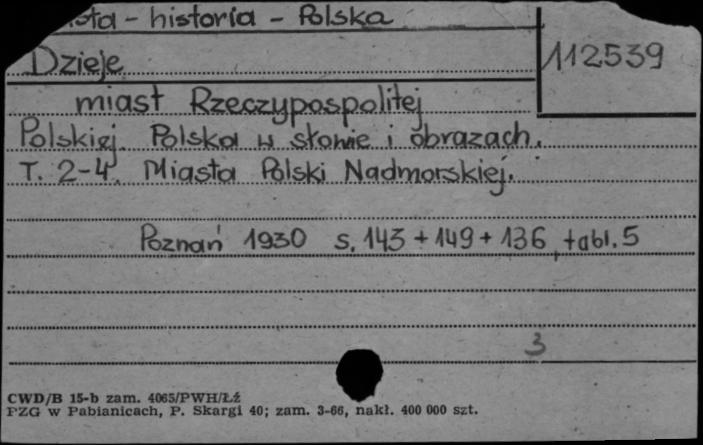 - historia - Polska
Dzieje
112539
miast Rzeczypospolitej
Polskiej. Polska w słowie i obrazach.
T. 2-4. Miasta Polski Nadmorskiej.
Poznań 1930 s. 143 + 149 + 136, tabl. 5
3
CWD/B 15-b zam. 4065/PWH/Łź
PZG w Pabianicach, P. Skargi 40; zam. 3-66, nakł. 400 000 szt.